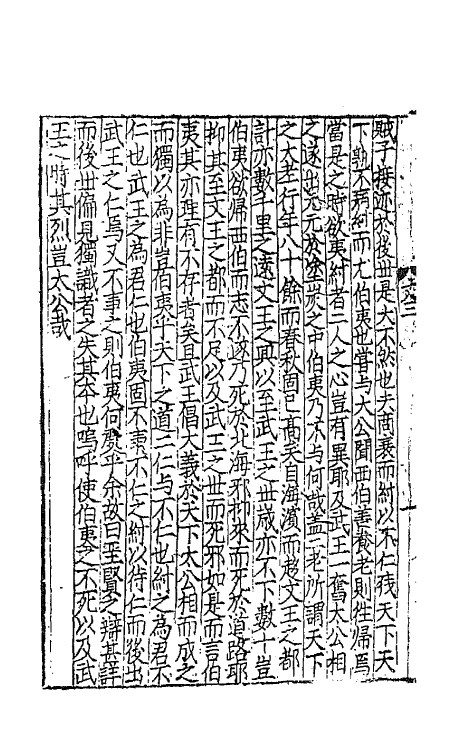 賊子接迹於後世是大不然也夫商衰而紂以不仁残天下天
下孰不病紂而尤伯夷也嘗与大公聞西伯善養老則往歸焉
當是之時欲夷紂者二人之心豈有異耶及武王一奮太公相
之遂出元元於塗炭之中伯夷乃不与何哉盖二老所謂天下
之大老行年八十餘而春秋固已髙矣自海濱而趍文王之都
計亦數千里之遠文王之興以至武王之世歲亦不下數十豈
伯夷欲歸西伯而志不遂乃死於北海邪抑來而死於道路耶
抑其至文王之都而不足以及武王之世而死邪如是而言伯
夷其亦理有不存者矣且武王倡大義於天下太公相而成之
而獨以為非豈伯夷乎天下之道二仁与不仁也紂之為君不
仁也武王之為君仁也伯夷固不事不仁之紂以待仁而後出
武王之仁焉又不事之則伯夷何處乎余故曰至賢之辯甚詳
而後世偏見獨識者之失其夲也嗚呼使伯夷之不死以及武
王之時其烈豈太公哉